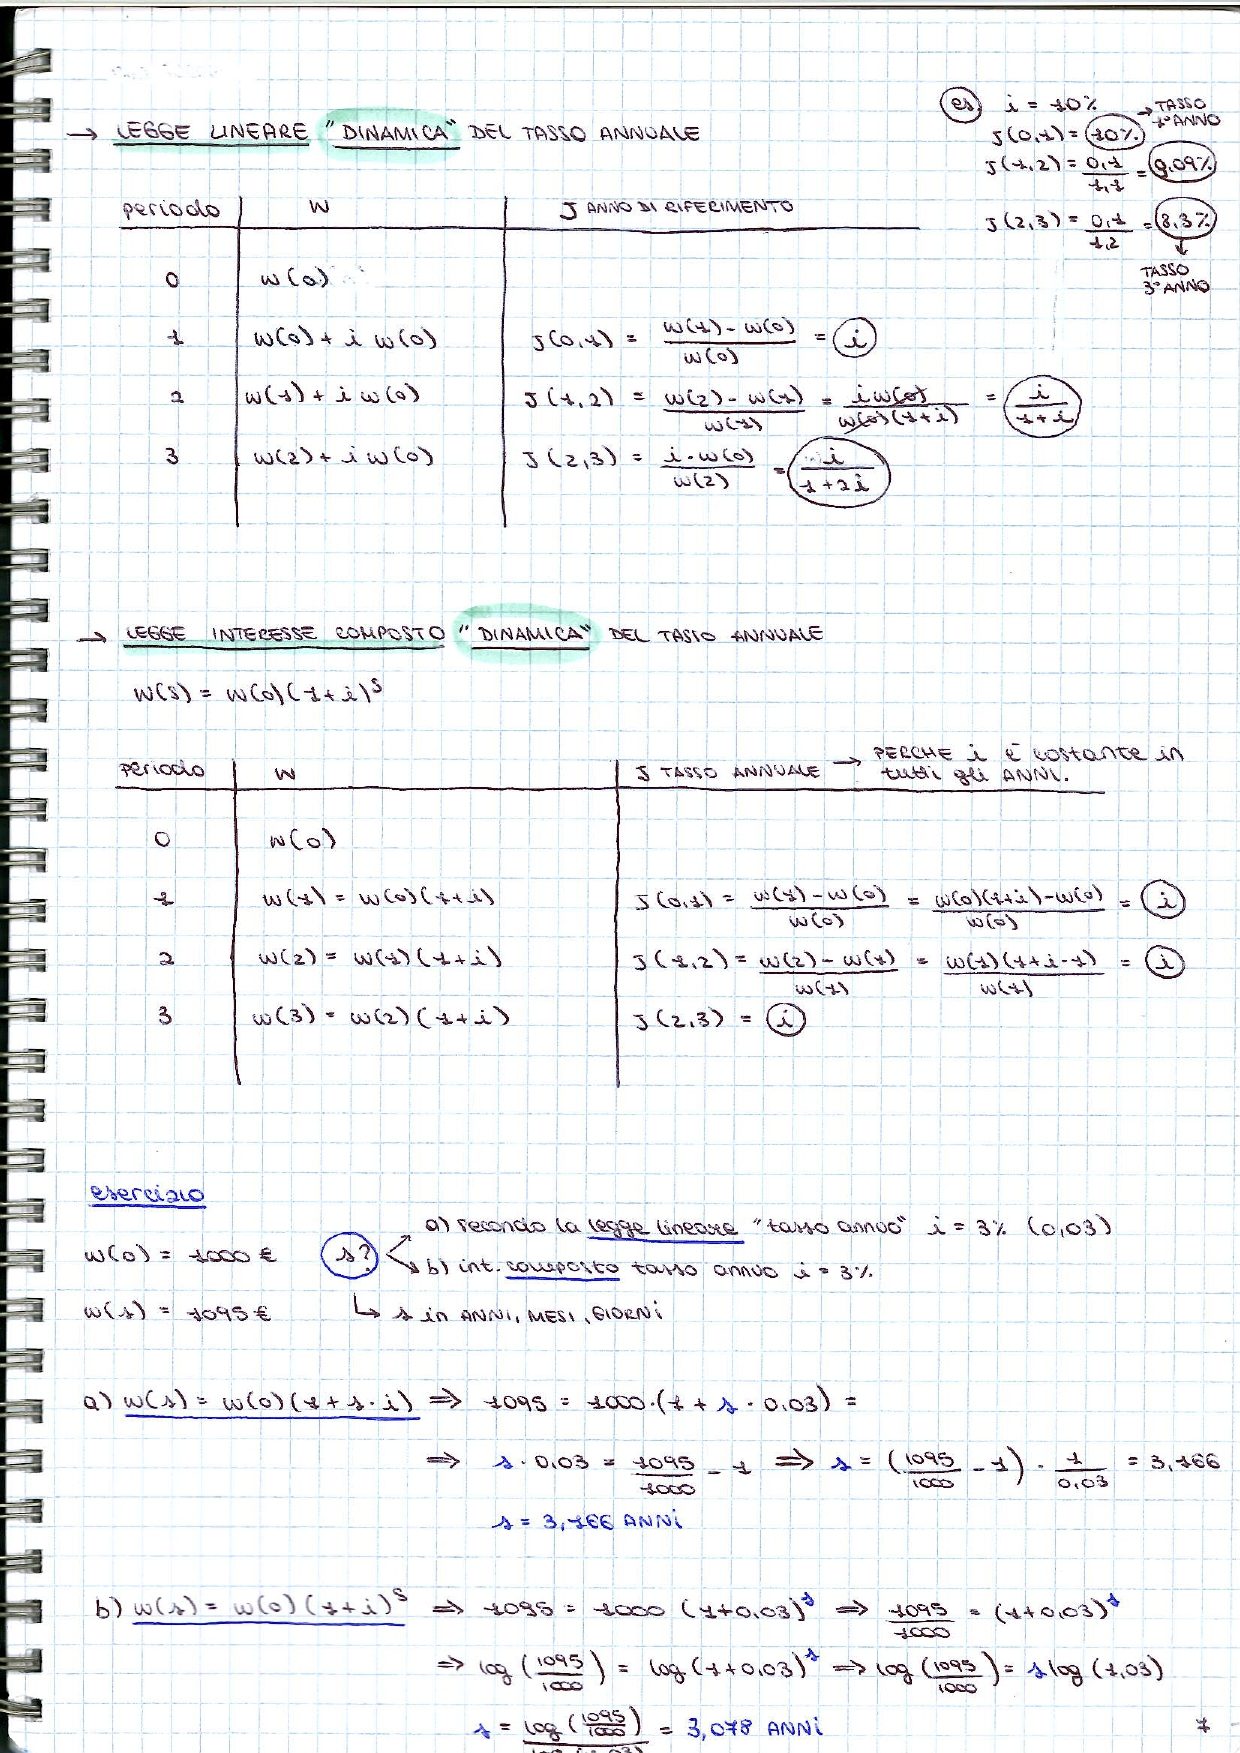 es. i = 10%
→ TASSO 1° ANNO
J(0,1) = 10%
J(1,2) = 0,1/1,1 = 9,09%
J(2,3) = 0,1/1,2 = 8,3%
↓
TASSO 3° ANNO
→ LEGGE LINEARE "DINAMICA" DEL TASSO ANNUALE
periodo W J ANNO DI RIFERIMENTO
0 w(0)
1 w(0) + i w(0) J(0,1) = (w(1) - w(0))/w(0) = i
2 w(1) + i w(0) J(1,2) = (w(2) - w(1))/w(1) = i w(0)/(w(0)(1+i)) = i/(1+i)
3 w(2) + i w(0) J(2,3) = i·w(0)/w(2) = i/(1+2i)
→ LEGGE INTERESSE COMPOSTO "DINAMICA" DEL TASSO ANNUALE
w(s) = w(0)(1+i)^s
periodo W J TASSO ANNUALE → PERCHE i È costante in
tutti gli ANNI.
0 w(0)
1 w(1) = w(0)(1+i) J(0,1) = (w(1) - w(0))/w(0) = (w(0)(1+i) - w(0))/w(0) = i
2 w(2) = w(1)(1+i) J(1,2) = (w(2) - w(1))/w(1) = w(1)(1+i-1)/w(1) = i
3 w(3) = w(2)(1+i) J(2,3) = i
esercizio
a) secondo la legge lineare "tasso annuo" i = 3% (0,03)
w(0) = 1000 € s?
b) int. composto tasso annuo i = 3%
w(s) = 1095 € ↳ s in ANNI, MESI, GIORNI
a) w(s) = w(0)(1 + s·i) ⇒ 1095 = 1000·(1 + s · 0,03) =
⇒ s · 0,03 = 1095/1000 - 1 ⇒ s = (1095/1000 - 1) · 1/0,03 = 3,166
s = 3,166 ANNI
b) w(s) = w(0)(1+i)^s ⇒ 1095 = 1000 (1+0,03)^s ⇒ 1095/1000 = (1+0,03)^s
⇒ log(1095/1000) = log(1+0,03)^s ⇒ log(1095/1000) = s log(1,03)
s = log(1095/1000)/log(1,03) = 3,078 ANNI
7